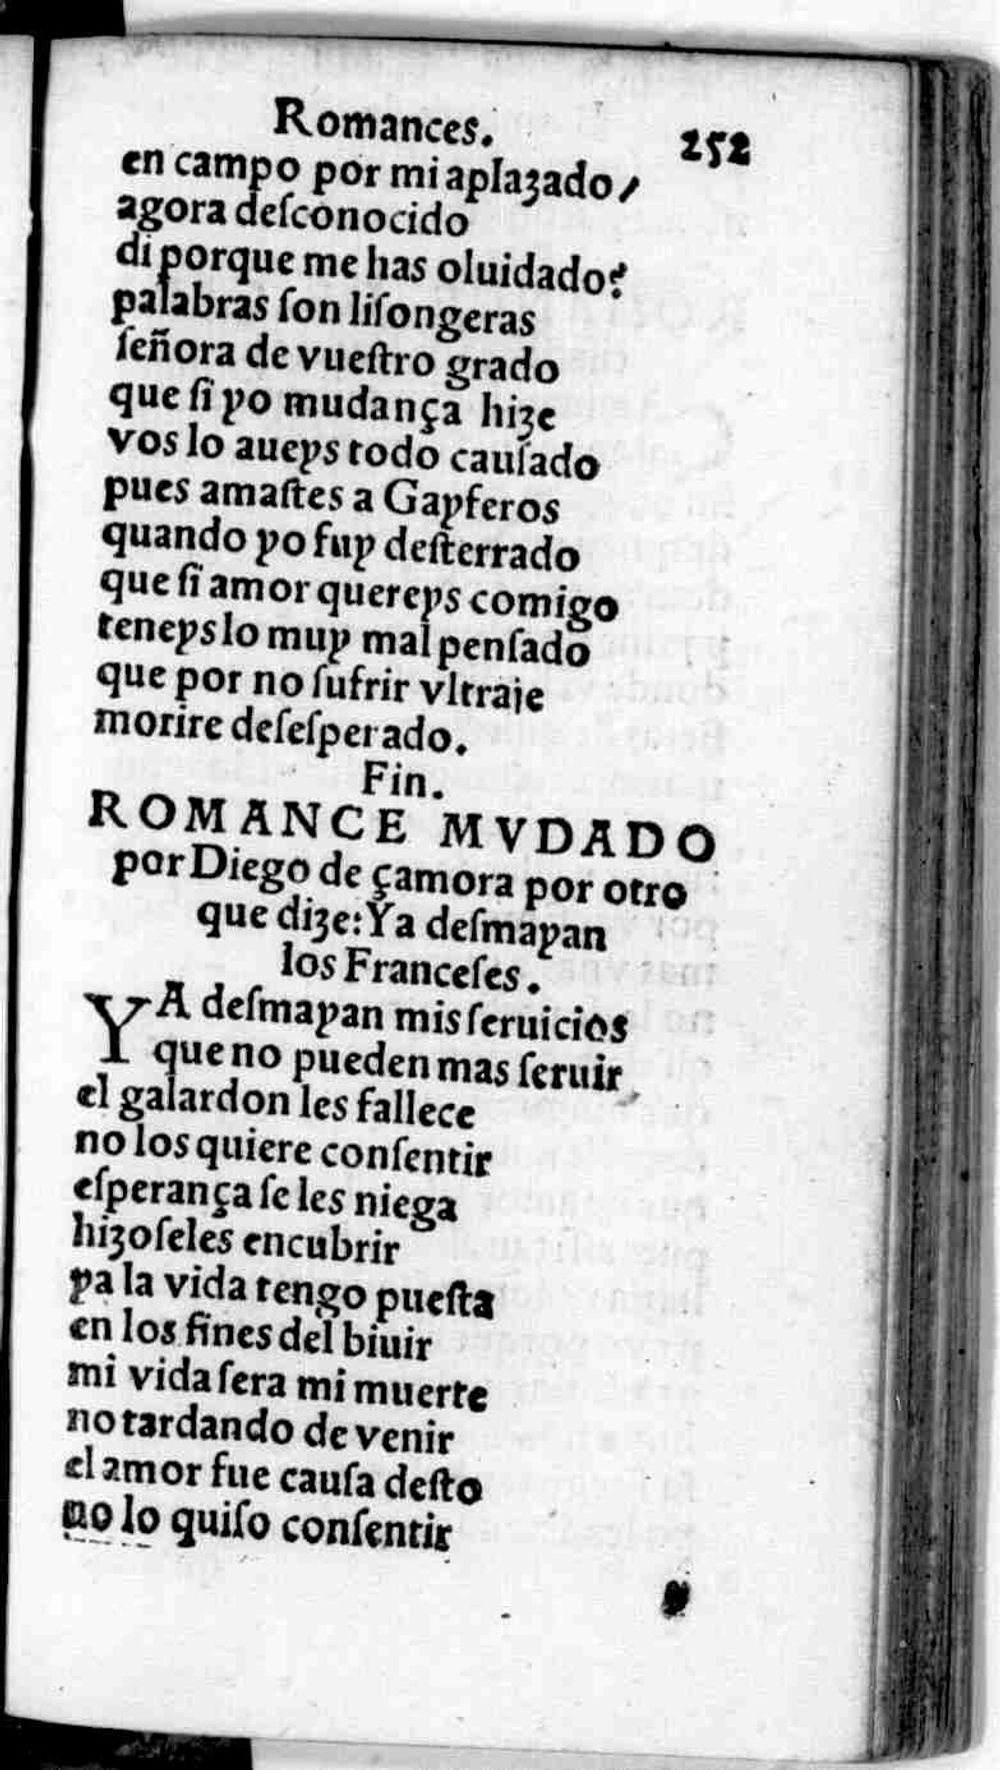 Romances. 252
en campo por mi aplazado/
agora deſconocido
di porque me has oluidado?
palabras ſon liſongeras
ſeñora de vueſtro grado
que ſi yo mudança hize
vos lo aueys todo cauſado
pues amaſtes a Gayferos
quando yo fuy deſterrado
que ſi amor quereys comigo
teneyslo muy mal penſado
que por no ſufrir vltraje
morire deſeſperado.
Fin.
ROMANCE MVDADO
por Diego de çamora por otro
que dize: Ya deſmayan
los Franceſes.
YA deſmayan mis ſeruicios
que no pueden mas ſeruir
el galardon les fallece
no los quiere conſentir
eſperança ſe les niega
hizoſeles encubrir
ya la vida tengo pueſta
en los fines del biuir
mi vida ſera mi muerte
no tardando de venir
el amor fue cauſa deſto
no lo quiſo conſentir